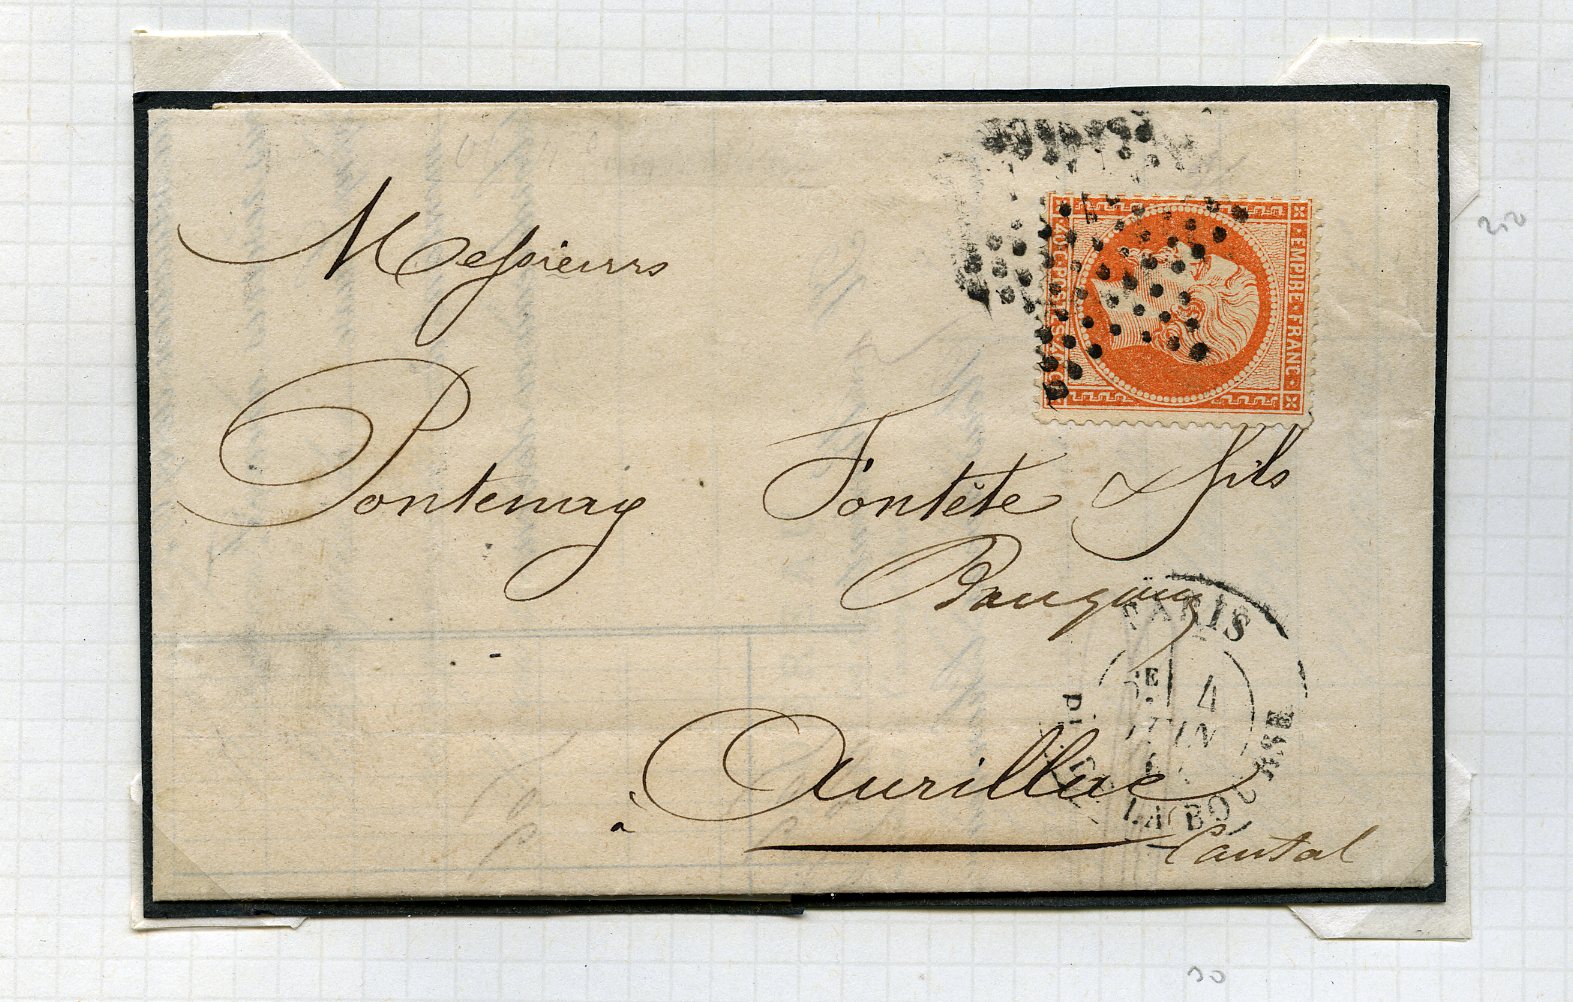 EMPIRE · FRANC ·
40 C · POSTES · 40 C
Messieurs
Fontenay Fontête & fils
à Aurillac
Cantal
PARIS
4
JUIN
PL. DE LA BOURSE